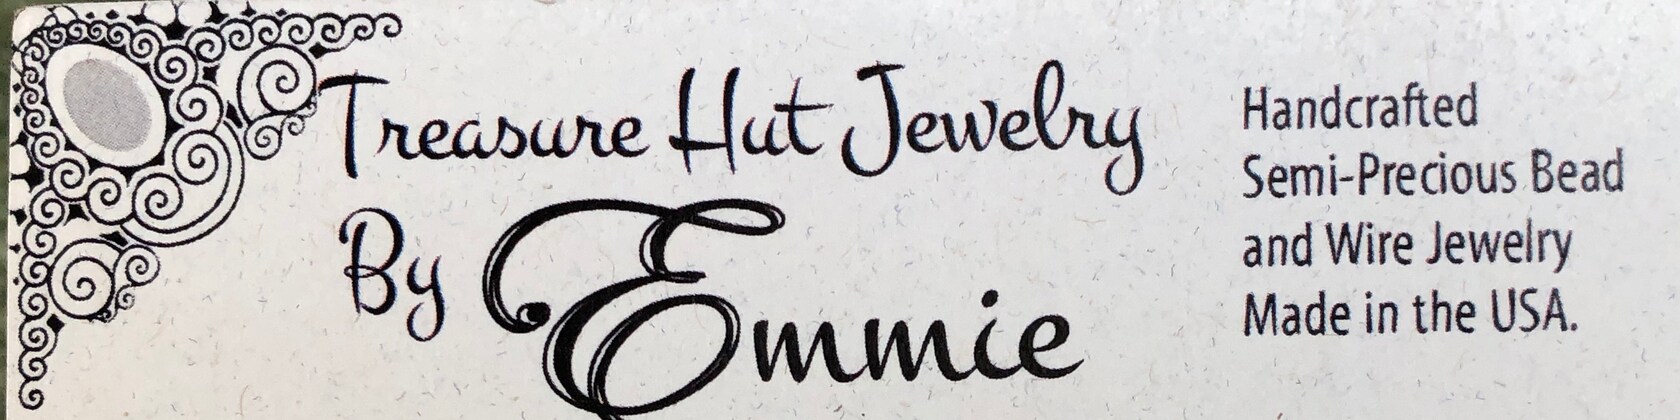 Treasure Hut Jewelry
By Emmie
Handcrafted
Semi-Precious Bead
and Wire Jewelry
Made in the USA.